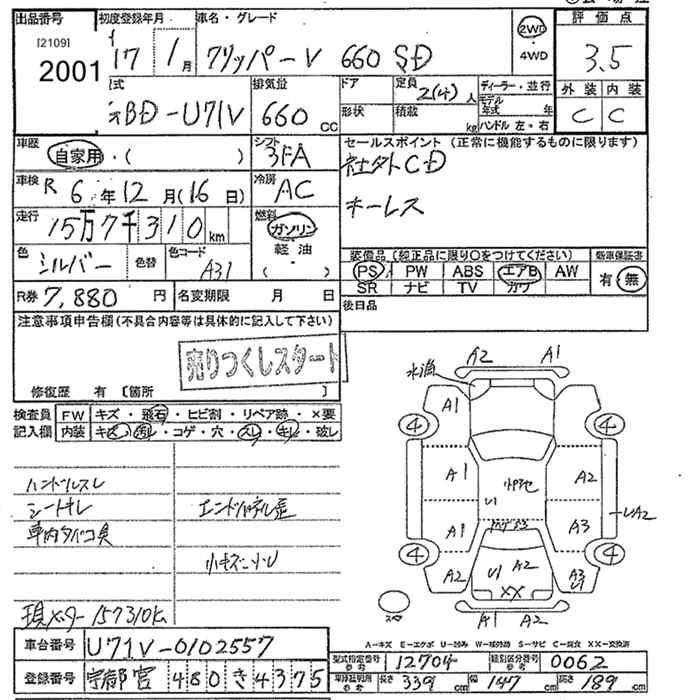 出品番号 初度登録年月 車名・グレード 評価点
[2109] 2001 17 1月 クリッパーV 660 SD 2WD・4WD 3.5
型式 排気量 ドア 定員 ディーラー・並行 外装 内装
BD-U71V 660cc 2(4)人 モデル年式 年 C C
形状 積載 kg ハンドル 左・右
車歴 自家用・( ) シフト 3FA セールスポイント (正常に機能するものに限ります)
車検 R 6年12月(16日) 冷房 AC 社外CD
キーレス
走行 15万7千310km 燃料 ガソリン・軽油・( )
色 シルバー 色替 色コード A31
装備品 (純正品に限り○をつけてください) 新車保証書
PS PW ABS エアB AW 有・無
SR ナビ TV カワ
R券 7,880円 名変期限 月 日 後日品
注意事項申告欄(不具合内容等は具体的に記入して下さい)
売りつくしスタート
修復歴 有 〔箇所 〕
検査員 FW キズ・飛石・ヒビ割・リペア跡・×要
記入欄 内装 キズ・汚レ・コゲ・穴・スレ・キレ・破レ
A2 A1
水滴
A1
4 4
A1 A2
A1 A3 A2
4 4
A2 U1 A2 A3
XX
A1 A2
ハンドルスレ
シートキレ
車内タバコ臭
小キズ
現メーター157310k
スペア
A-キズ E-エクボ U-凹み W-補修跡 S-サビ C-腐食 XX-交換済
車台番号 U71V-0102557
型式指定番号 参考 12704 類別区分番号 参考 0062
登録番号 宇都宮 480 き 4375
車庫証明用 参考 長さ 339cm 幅 147cm 高さ 189cm